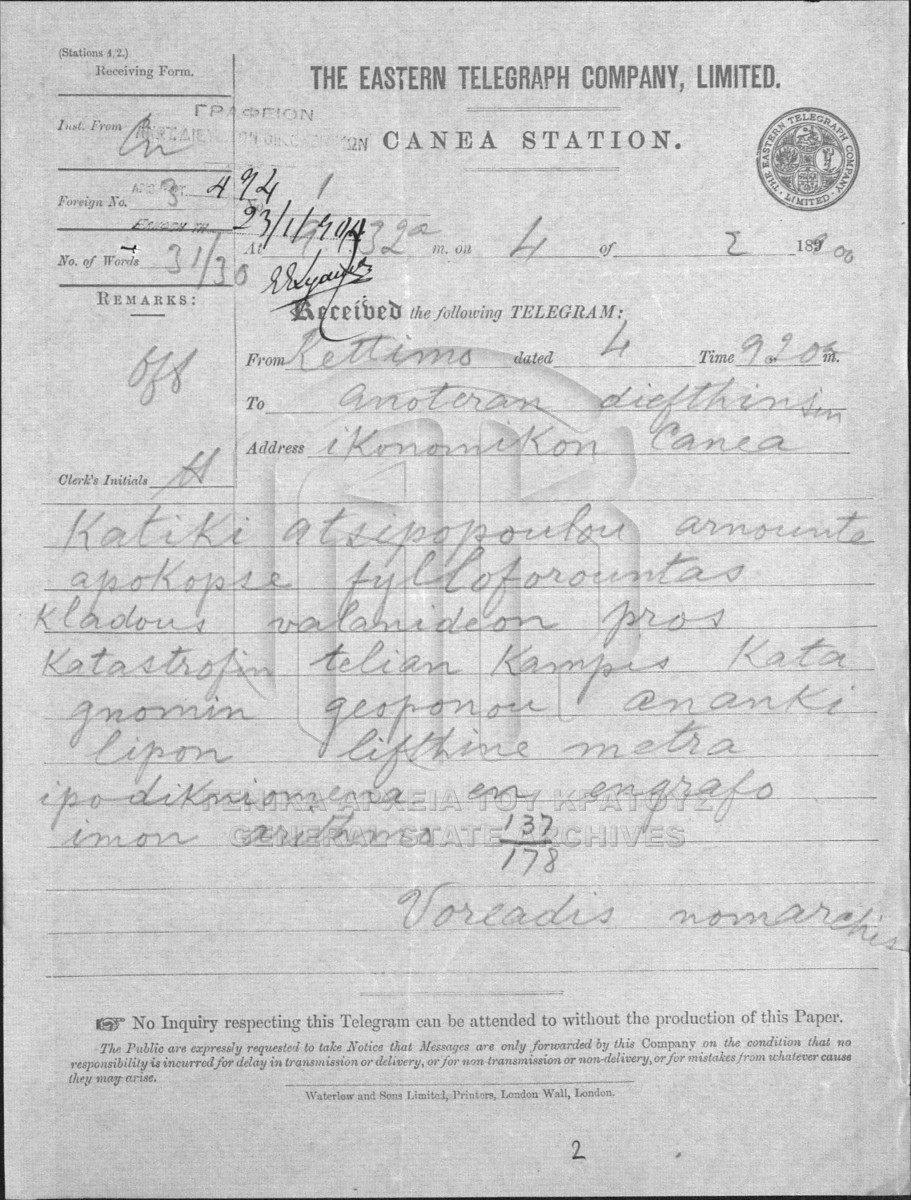 (Stations 4/2.)
Receiving Form.
THE EASTERN TELEGRAPH COMPANY, LIMITED.
ΓΡΑΦΕΙΟΝ
Inst. From
CANEA STATION.
THE EASTERN TELEGRAPH COMPANY LIMITED.
Foreign No. 3 494
23/1/900
At 32a m. on 4 of 2 1900
No. of Words 31/30
REMARKS:
Received the following TELEGRAM:
From Rettimo dated 4 Time 9.20 a m.
off
To anoteran diefthinsin
Address ikonomikon Canea
Clerk's Initials
Katiki atsipopoulou arnounte
apokopse fylloforountas
kladous valanideon pros
katastrofin telian kampis kata
gnomin geoponou ananki
lipon lifthine metra
ipodikniomena en engrafo
imon arithmo 137
178
ΓΕΝΙΚΑ ΑΡΧΕΙΑ ΤΟΥ ΚΡΑΤΟΥΣ
GENERAL STATE ARCHIVES
Voreadis nomarchis
☞ No Inquiry respecting this Telegram can be attended to without the production of this Paper.
The Public are expressly requested to take Notice that Messages are only forwarded by this Company on the condition that no
responsibility is incurred for delay in transmission or delivery, or for non-transmission or non-delivery, or for mistakes from whatever cause
they may arise.
Waterlow and Sons Limited, Printers, London Wall, London.
2